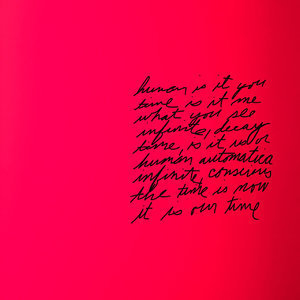 human is it you
time is it me
what you see
infinite, decay
time, is it us or
human automatica
infinite, conscious
the time is now
it is our time